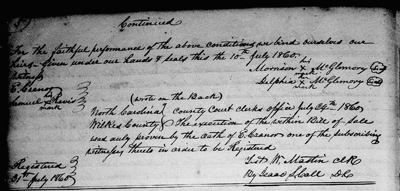 Continued
For the faithful performance of the above conditions we bind ourselves our
heirs given under our hands & seals this the 10th July 1860.
his
Morrison x McGlemory Seal
mark
witness
Delphia x McGlemory Seal
mark
E. Cranor
Samuel x Lewis
mark
(wrote on the Back)
North Carolina County Court Clerks office July 24th 1860
Wilkes County the execution of the within Bill of Sale
was duly proven by the oath of E. Cranor one of the subscribing
witness thereto in order to be Registered
Registered
31st July 1860
W. Mastin Clk
By Isaac S. Call D.C.